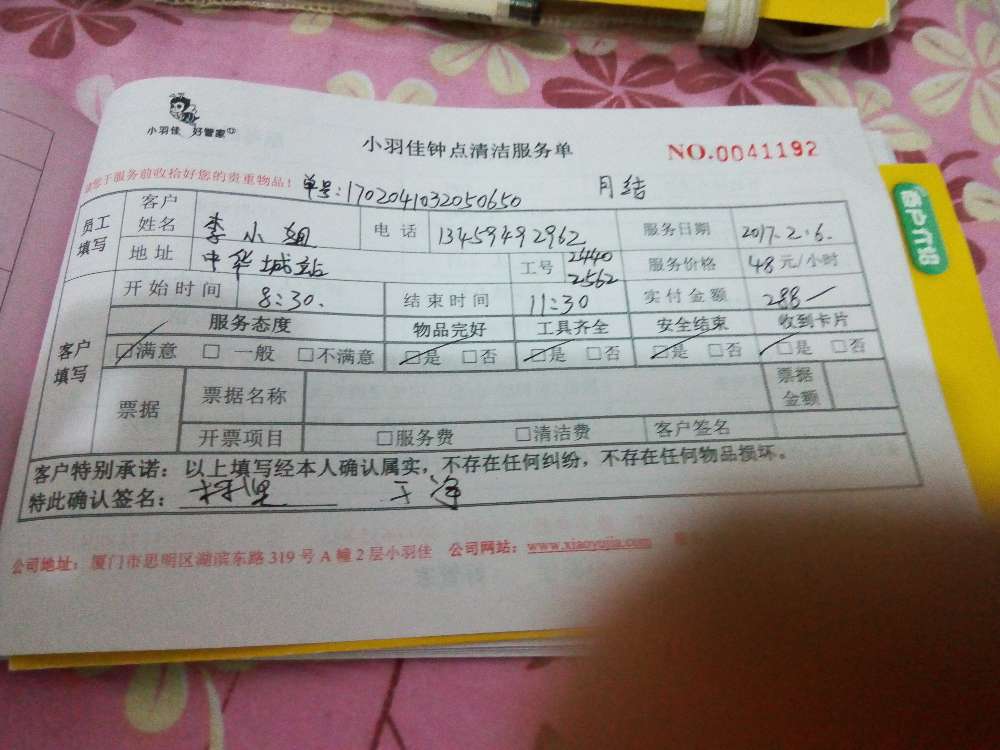 小羽佳 好管家
小羽佳钟点清洁服务单 NO.0041192
请您于服务前收拾好您的贵重物品! 单号:1702041032050650 月结
员工填写 客户姓名 李小姐 电话 13459492962 服务日期 2017.2.6.
地址 中华城站 工号 2440 2562 服务价格 48元/小时
开始时间 8:30. 结束时间 11:30 实付金额 288
客户填写 服务态度 物品完好 工具齐全 安全结束 收到卡片
☑满意 □一般 □不满意 ☑是 □否 ☑是 □否 ☑是 □否 ☑是 □否
票据 票据名称 票据金额
开票项目 □服务费 □清洁费 客户签名
客户特别承诺:以上填写经本人确认属实,不存在任何纠纷,不存在任何物品损坏。
特此确认签名: 干净
公司地址:厦门市思明区湖滨东路319号A幢2层小羽佳 公司网站:www.xiaoyujia.com
客户介绍